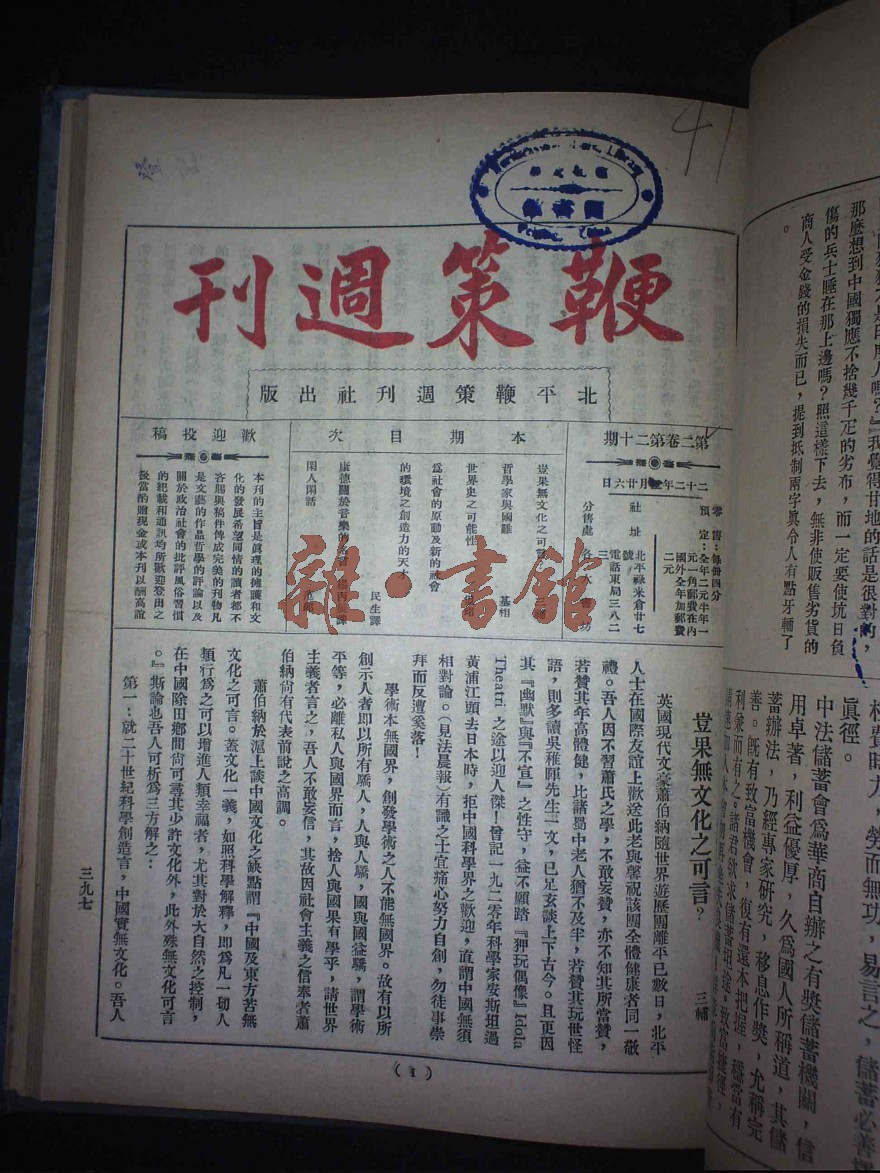 41
鞭策週刊
北平鞭策週刊社出版
第二卷第二十期
二十二年 月廿六日
零售：每冊四分
預定：全年二元半年一
元一角郵費在內
國外全年加郵費
二元
社址 北平祿米倉廿七
號
電話東局三八二
三
分售處 各大書坊
本期目次
豈果無文化之可言 三輔
哲學家與國難 基相
世界史之可能性
為社會的原動及新的社會
的環境之創造力的天才 民生譯
康德關於音樂的格言 丙辰譯
閑人閑話
歡迎投稿
本刊的主旨是眞理的擁護和文
化的發展希望同情的讀者都不
客賜與稿件俾成完美的刊物凡
是文藝的作品哲學的評論以及
關於政治社會的批評風俗習慣
的記載和通訊均所歡迎登出之
後當酌贈現金或本刊以酬高誼
豈果無文化之可言？
三輔
英國現代文豪蕭伯納隨世界遊歷團離平已數日，北平
人士在國際友誼上歡送此老與馨祝該團全體健康者同一敬
禮。吾人因不習蕭氏之學，不敢妄贊，亦不知其所當贊，
若贊其年高體健，比諸蜀中老人猶不及半，若贊其玩世怪
語，則多讀吳稚暉先生一文，已足玄談上下古今。且更因
其『幽默』與『不宣』之性守，益不願踏『狎玩偶像』Idola
Theatri 之途以迎人傑！曾記一九二零年科學家安斯坦過
黃浦江頭去日本時，拒中國科學界之歡迎，直謂中國無須
相對論。（見法晨報）有識之士宜痛心努力自創，勿徒事崇
拜而反遭奚落！
學術本無國界，創發學術之人不能無國界。故有以所
創示人者即以所有驕人，人與人驕，國與國益驕，謂學術
平等，必離私人與國界而言，捨人與國果有學乎，請世界
主義者言之，吾人不敢妄信，其故因社會主義之信奉者蕭
伯納尚有代表前說之高調。
蕭伯納於滬上談中國文化之缺點謂『中國及東方若無
文化之可言。蓋文化一義，如照科學解釋，即爲凡一切人
類行爲之可以增進人類幸福者，尤其對於大自然之控制，
在中國除田鄉間尙可尋其少許文化外，此外殊無文化可言
。』斯論也吾人可析爲三方解之：
第一：就二十世紀科學創造言，中國實無文化。吾人
三九七
（1）
雜·書館
那麼想到中國獨應不捨幾千疋的劣布，而一定要使坑日負
傷的兵士睡在那上邊嗎？照這樣下去，無非使販售劣貨的
商人受金錢的損失而已，提到抵制兩字眞令人有點牙輭了
。
眞徑。
中法儲蓄會爲華商自辦之有獎儲蓄機關，信
用卓著，利益優厚，久爲國人所稱道，其儲
蓄辦法，乃經專家研究，移息作獎，尤稱完
善。既有致富機會，復有還本把握，穩當有
利兼而有之。諸君欲求儲蓄坦途。致富捷徑，